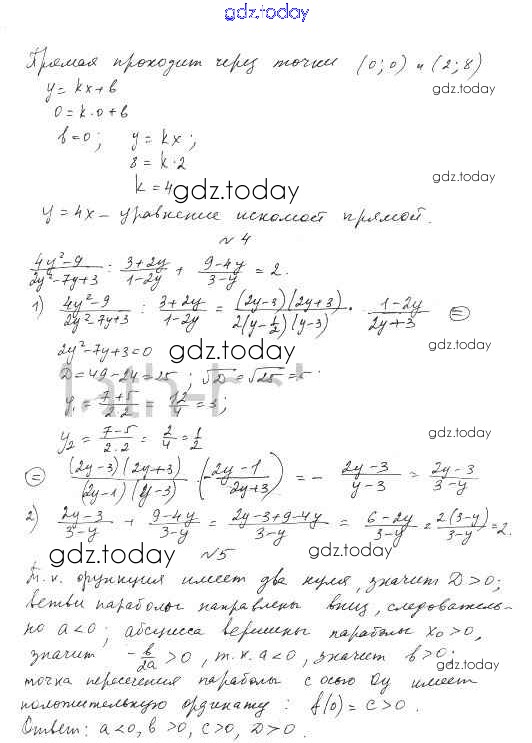 gdz.today
Прямая проходит через точки (0;0) и (2;8)
y=kx+b
gdz.today
0=k·0+b
b=0; y=kx;
8=k·2
k=4
gdz.today
gdz.today
y=4x – уравнение искомой прямой.
№4
(4y²-9)/(2y²-7y+3) : (3+2y)/(1-2y) + (9-4y)/(3-y) = 2.
1) (4y²-9)/(2y²-7y+3) : (3+2y)/(1-2y) = ((2y-3)(2y+3))/(2(y-1/2)(y-3)) · (1-2y)/(2y+3) =
2y²-7y+3=0
gdz.today
gdz.today
D=49-24=25; √D=√25=5
y₁=(7+5)/(2·2)=12/4=3;
y₂=(7-5)/(2·2)=2/4=1/2
gdz.today
= ((2y-3)(2y+3))/((2y-1)(y-3)) · (-(2y-1)/(2y+3)) = -(2y-3)/(y-3) = (2y-3)/(3-y)
2) (2y-3)/(3-y) + (9-4y)/(3-y) = (2y-3+9-4y)/(3-y) = (6-2y)/(3-y) = (2(3-y))/(3-y) = 2.
gdz.today
№5
gdz.today
Т.к. функция имеет два нуля, значит D>0;
ветви параболы направлены вниз, следователь-
но a<0; абсцисса вершины параболы x₀>0,
значит -b/2a>0, т.к. a<0, значит b>0;
gdz.today
точка пересечения параболы с осью Oy имеет
положительную ординату: f(0)=c>0.
Ответ: a<0, b>0, c>0, D>0.
gdz.today